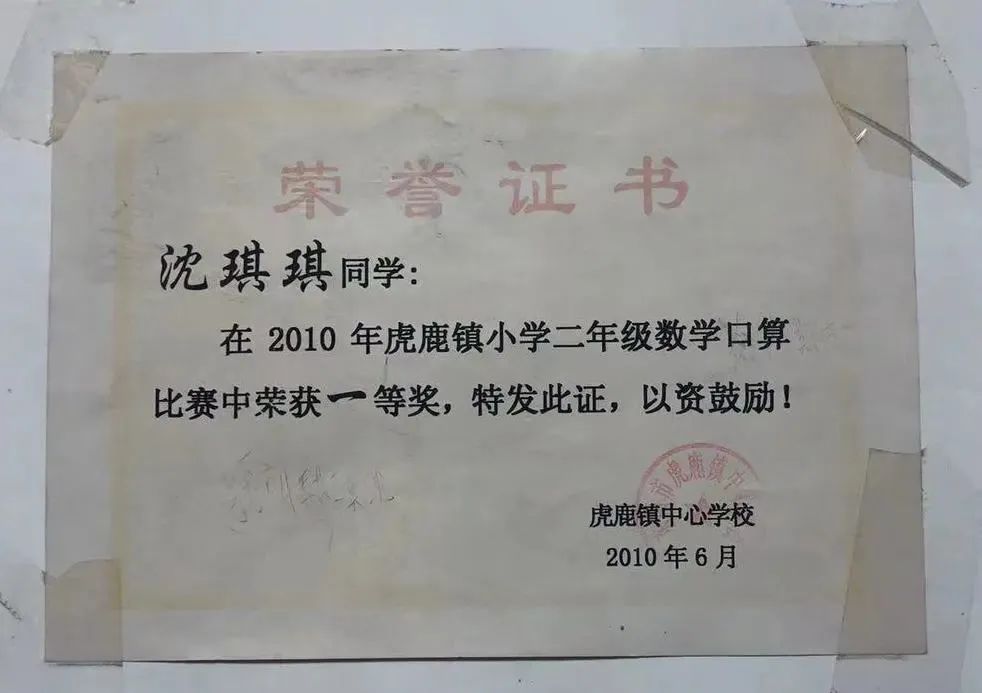 荣誉证书
沈琪琪同学：
在 2010 年虎鹿镇小学二年级数学口算
比赛中荣获一等奖，特发此证，以资鼓励！
市虎鹿镇中
虎鹿镇中心学校
2010 年 6 月